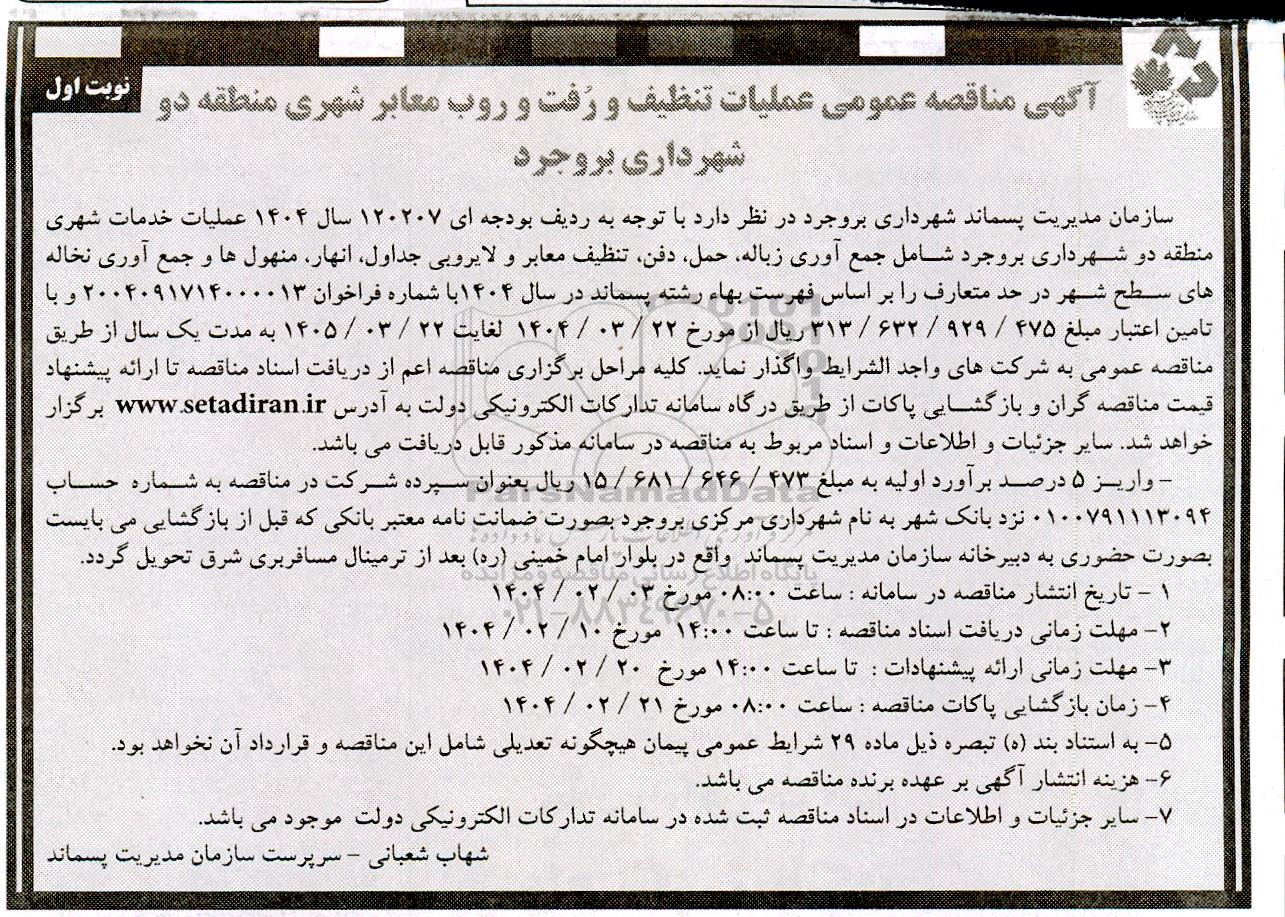 نوبت اول
آگهی مناقصه عمومی عملیات تنظیف و رُفت و روب معابر شهری منطقه دو
شهرداری بروجرد
سازمان مدیریت پسماند شهرداری بروجرد در نظر دارد با توجه به ردیف بودجه ای ۱۲۰۲۰۷ سال ۱۴۰۴ عملیات خدمات شهری
منطقه دو شهرداری بروجرد شامل جمع آوری زباله، حمل، دفن، تنظیف معابر و لایروبی جداول، انهار، منهول ها و جمع آوری نخاله
های سطح شهر در حد متعارف را بر اساس فهرست بهاء رشته پسماند در سال ۱۴۰۴با شماره فراخوان ۲۰۰۴۰۹۱۷۱۴۰۰۰۰۱۳ و با
تامین اعتبار مبلغ ۴۷۵ / ۹۲۹ / ۶۳۲ / ۳۱۳ ریال از مورخ ۲۲ / ۰۳ / ۱۴۰۴ لغایت ۲۲ / ۰۳ / ۱۴۰۵ به مدت یک سال از طریق
مناقصه عمومی به شرکت های واجد الشرایط واگذار نماید. کلیه مراحل برگزاری مناقصه اعم از دریافت اسناد مناقصه تا ارائه پیشنهاد
قیمت مناقصه گران و بازگشایی پاکات از طریق درگاه سامانه تدارکات الکترونیکی دولت به آدرس www.setadiran.ir برگزار
خواهد شد. سایر جزئیات و اطلاعات و اسناد مربوط به مناقصه در سامانه مذکور قابل دریافت می باشد.
- واریز ۵ درصد برآورد اولیه به مبلغ ۴۷۳ / ۶۴۶ / ۶۸۱ / ۱۵ ریال بعنوان سپرده شرکت در مناقصه به شماره حساب
۰۱۰۰۷۹۱۱۱۳۰۹۴ نزد بانک شهر به نام شهرداری مرکزی بروجرد بصورت ضمانت نامه معتبر بانکی که قبل از بازگشایی می بایست
بصورت حضوری به دبیرخانه سازمان مدیریت پسماند واقع در بلوار امام خمینی (ره) بعد از ترمینال مسافربری شرق تحویل گردد.
۱ - تاریخ انتشار مناقصه در سامانه : ساعت ۰۸:۰۰ مورخ ۰۳ / ۰۲ / ۱۴۰۴
۲- مهلت زمانی دریافت اسناد مناقصه : تا ساعت ۱۴:۰۰ مورخ ۱۰ / ۰۲ / ۱۴۰۴
۳- مهلت زمانی ارائه پیشنهادات : تا ساعت ۱۴:۰۰ مورخ ۲۰ / ۰۲ / ۱۴۰۴
۴- زمان بازگشایی پاکات مناقصه : ساعت ۰۸:۰۰ مورخ ۲۱ / ۰۲ / ۱۴۰۴
۵- به استناد بند (ه) تبصره ذیل ماده ۲۹ شرایط عمومی پیمان هیچگونه تعدیلی شامل این مناقصه و قرارداد آن نخواهد بود.
۶- هزینه انتشار آگهی بر عهده برنده مناقصه می باشد.
۷- سایر جزئیات و اطلاعات در اسناد مناقصه ثبت شده در سامانه تدارکات الکترونیکی دولت موجود می باشد.
شهاب شعبانی - سرپرست سازمان مدیریت پسماند
ParsNamadData
پایگاه اطلاع رسانی مناقصه و مزایده
۰۲۱-۸۸۳۴۹۶۷۰-۵